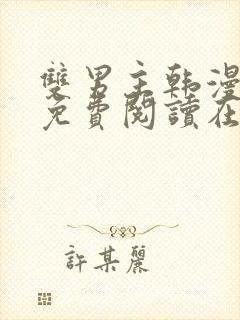 雙男主韩漫
免費閱讀在
許某麗